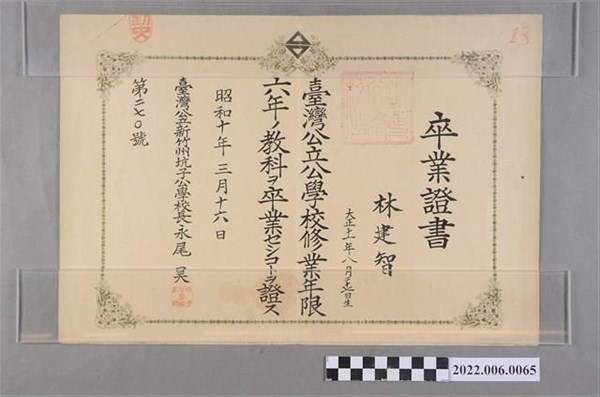 卒業證書
林建智
臺灣公立公學校修業年限
六年ノ教科ヲ卒業セシコトヲ證ス
昭和十年三月十六日
臺灣公立新竹州坑子公學校長永尾昊
第二七〇號
13
2022.006.0065